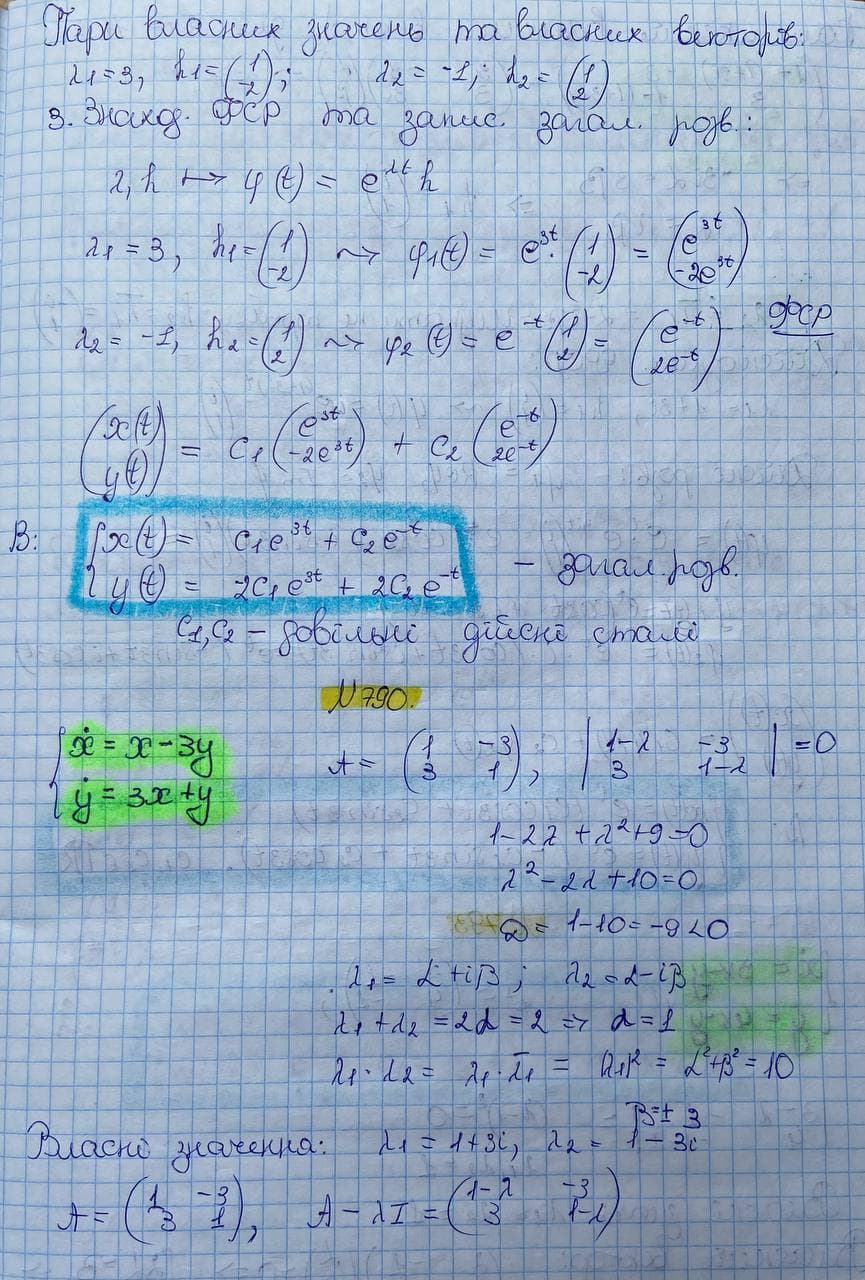 Пари власних значень та власних векторів:
λ1=3, h1=(1 -2); λ2=-1; h2=(1 2)
3. Знаход. ФСР та запис. загал. розв.:
λ, h ↦ φ(t) = e^{λt} h
λ1=3, h1=(1 -2) ⇝ φ1(t) = e^{3t}·(1 -2) = (e^{3t} -2e^{3t})
λ2=-1, h2=(1 2) ⇝ φ2(t) = e^{-t}(1 2) = (e^{-t} 2e^{-t}) ФСР
(x(t) y(t)) = C1(e^{3t} -2e^{3t}) + C2(e^{-t} 2e^{-t})
В: {x(t) = C1e^{3t} + C2e^{-t}
y(t) = -2C1e^{3t} + 2C2e^{-t} – загал. розв.
C1, C2 – довільні дійсні сталі
N790.
{ẋ = x-3y A = (1 -3 3 1), |1-λ -3 3 1-λ| = 0
ẏ = 3x+y
1-2λ+λ²+9=0
λ²-2λ+10=0
D = 1-10=-9<0
λ1=α+iβ; λ2=α-iβ
λ1+λ2=2α=2 => α=1
λ1·λ2 = λ1·λ̄1 = |λ1|² = α²+β²=10
β=±3
Власні значення: λ1=1+3i, λ2=1-3i
A = (1 -3 3 1), A-λI = (1-λ -3 3 1-λ)